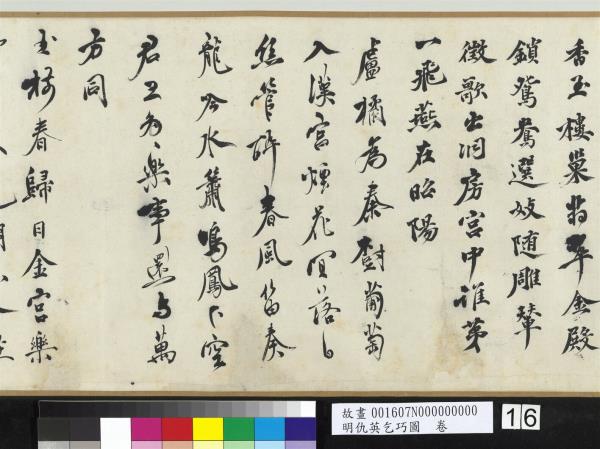 香玉樓巢翡翠金殿
鎖鴛鴦選妓随雕輦
徵歌出洞房宮中誰第
一飛燕在昭陽
盧橘為秦樹葡萄
入漢宮煙花宜落日
絲管醉春風笛奏
龍吟水簫鳴鳳下空
君王多樂事還与萬
方同
玉樹春歸日金宮樂
故畫 001607N000000000
明仇英乞巧圖 卷
16